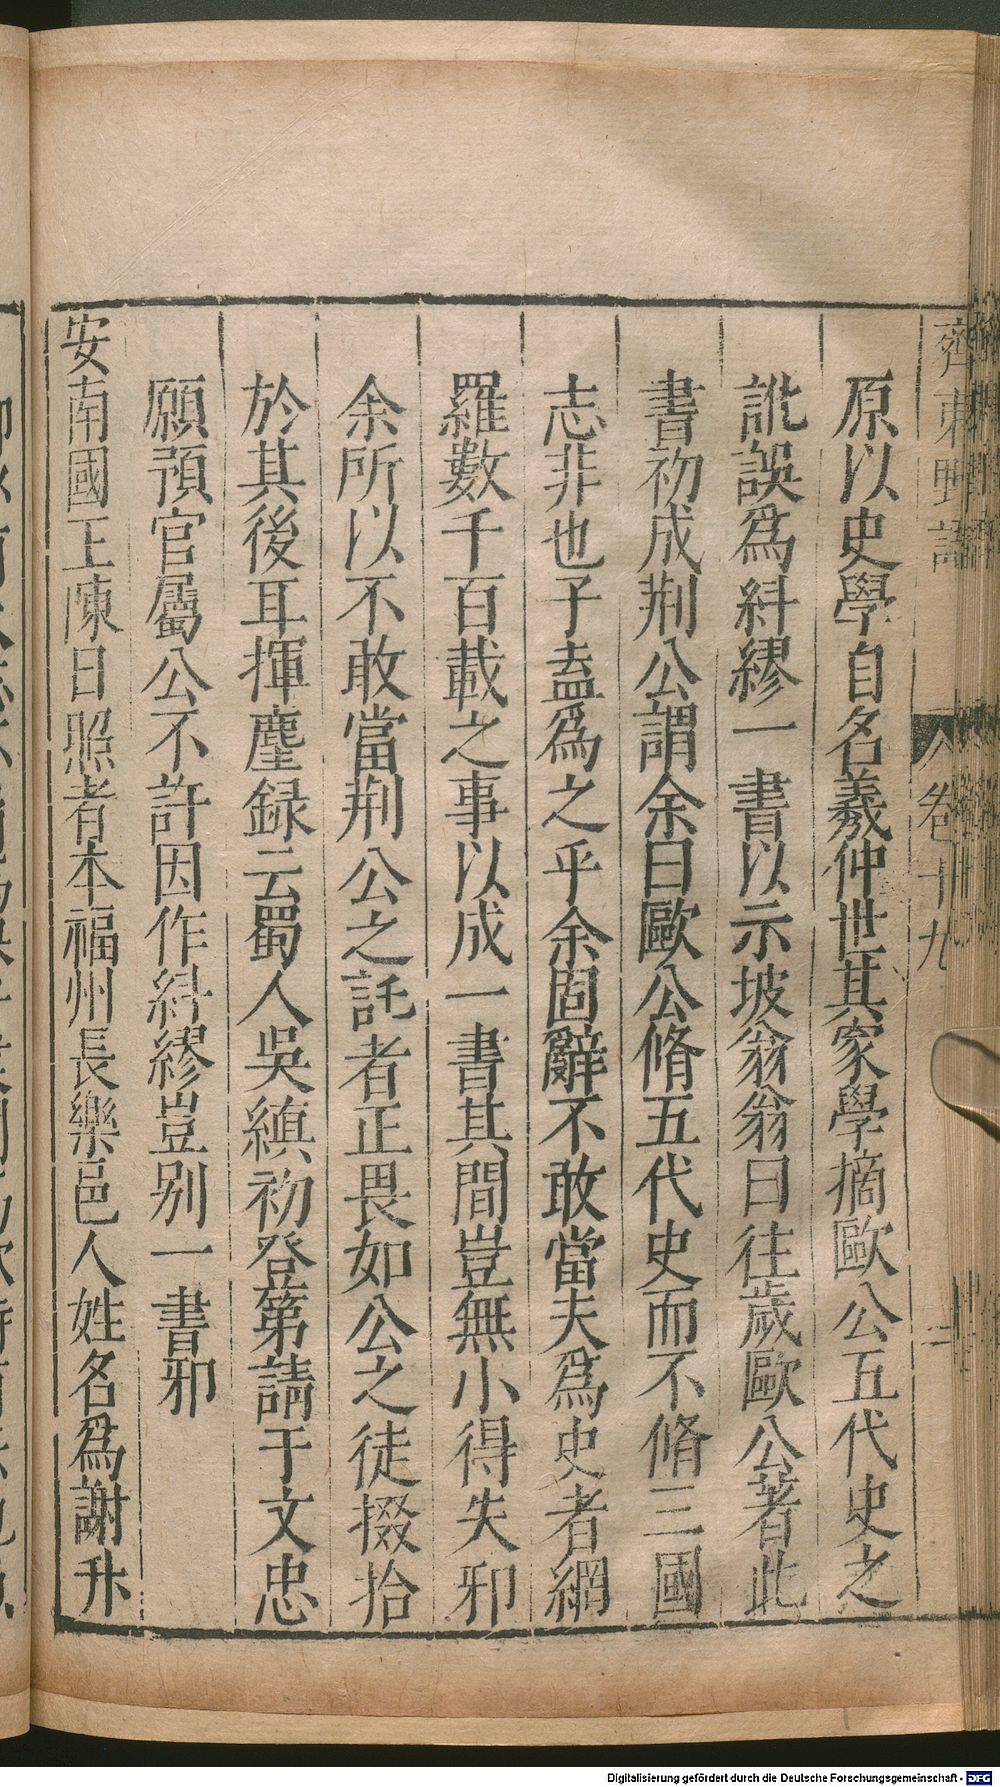 齊東野語 卷十九 二
原以史學自名羲仲世其家學摘歐公五代史之
訛誤爲糾繆一書以示坡翁翁曰往歲歐公著此
書初成荆公謂余曰歐公脩五代史而不脩三國
志非也子盍爲之乎余固辭不敢當夫爲史者網
羅數千百載之事以成一書其間豈無小得失邪
余所以不敢當荆公之託者正畏如公之徒掇拾
於其後耳揮麈録云蜀人吳縝初登第請于文忠
願預官屬公不許因作糾繆豈别一書邪
安南國王陳日照者本福州長樂邑人姓名爲謝升
Digitalisierung gefördert durch die Deutsche Forschungsgemeinschaft - DFG